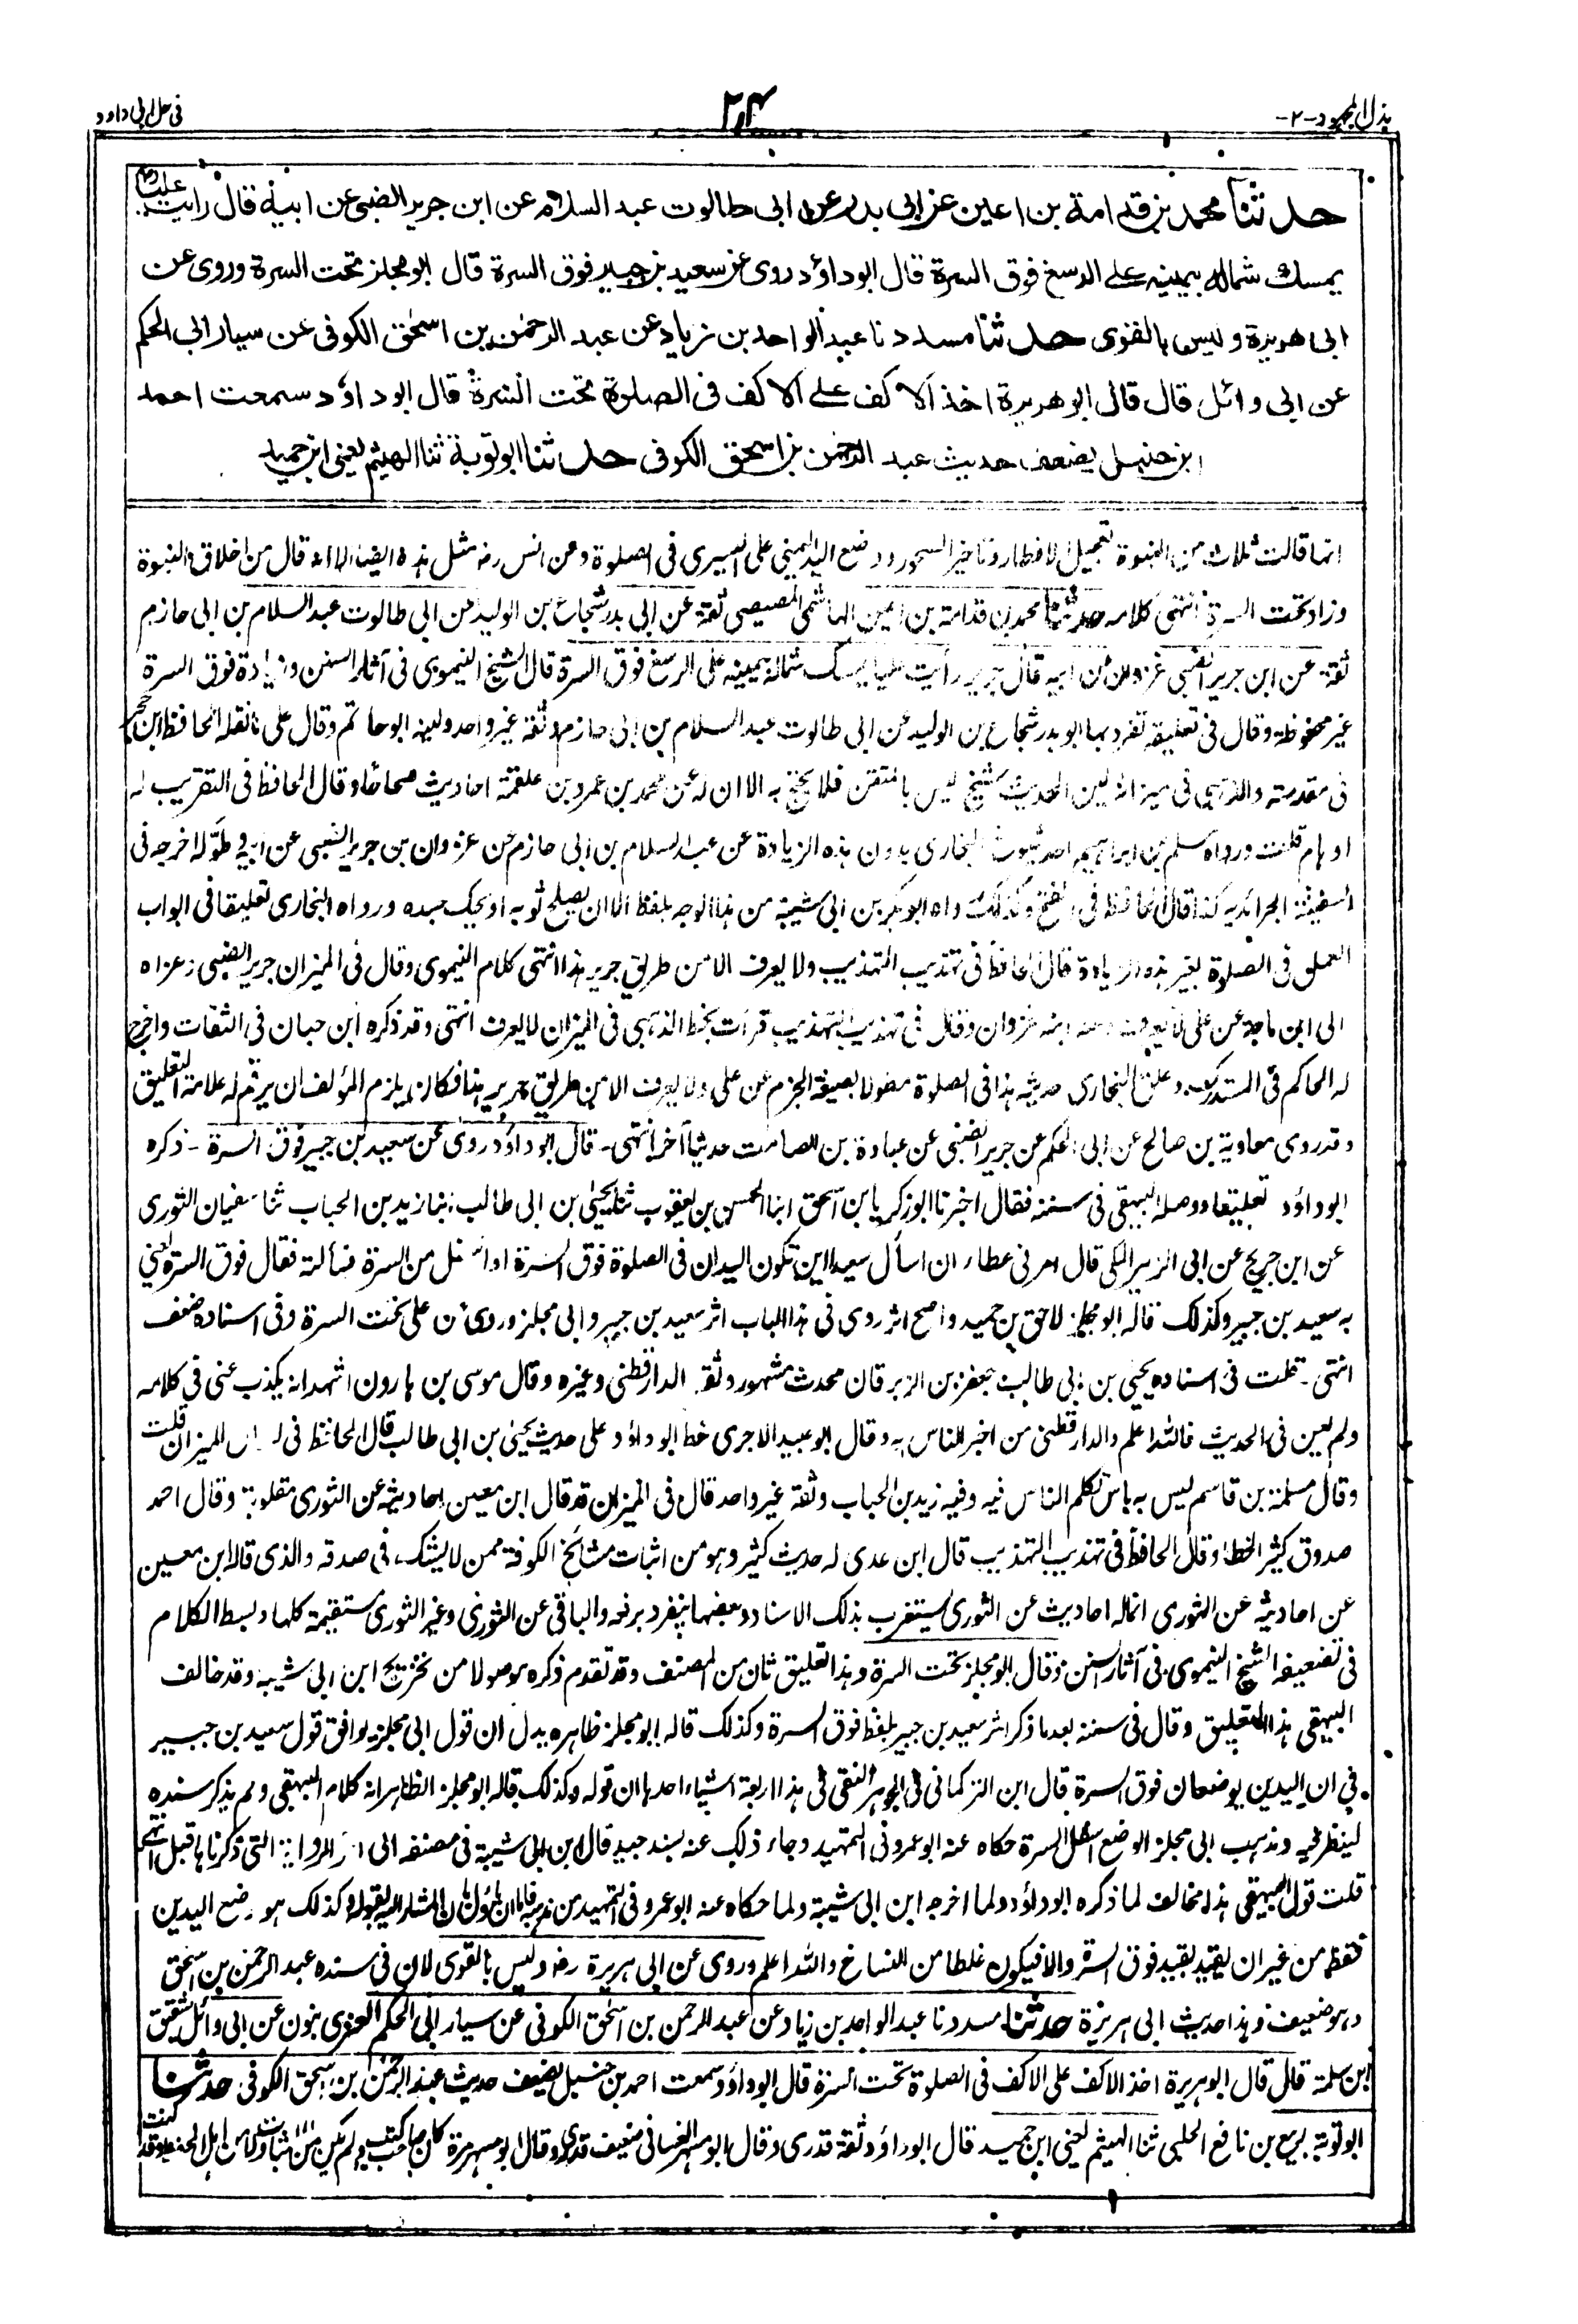 بذل المجهود -٢-
٢٤
في حل ابي داود
حدثنا محمد بن قدامة بن اعين عن ابى بدر عن ابى طالوت عبد السلام عن ابن جرير الضبى عن ابيه قال رايت عليا رض
يمسك شماله بيمينه على الرسغ فوق السرة قال ابوداؤد روى عن سعيد بن جبير فوق السرة قال ابو مجلز تحت السرة وروى عن
ابى هريرة وليس بالقوى حدثنا مسدد نا عبد الواحد بن زياد عن عبد الرحمٰن بن اسحٰق الكوفى عن سيار ابى الحكم
عن ابى وائل قال قال ابو هريرة اخذ الاكف على الاكف فى الصلوة تحت السرة قال ابوداؤد سمعت احمد
ابن حنبل يضعف حديث عبد الرحمٰن بن اسحق الكوفى حدثنا ابو توبة ثنا الهيثم يعنى ابن حميد
انها قالت ثلاث من النبوة تعجيل الافطار وتاخير السحور ووضع اليد اليمنى على اليسرى فى الصلوة وعن انس رض مثل هذه ايضا الا انه قال من اخلاق النبوة
وزاد تحت السرة انتهى كلامه حدثنا محمد بن قدامة بن اعين الهاشمى المصيصى ثقة عن ابى بدر شجاع بن الوليد عن ابى طالوت عبد السلام بن ابى حازم
ثقة عن ابن جرير الضبى غزوان عن ابيه قال جرير رأيت عليا يمسك شماله بيمينه على الرسغ فوق السرة قال الشيخ النيموى فى آثار السنن وزيادة فوق السرة
غير محفوظة وقال فى تعليقه تفرد بها ابو بدر شجاع بن الوليد عن ابى طالوت عبد السلام بن ابى حازم وثقه غير واحد ولينه ابو حاتم وقال على ما نقله الحافظ ابن حجر
فى مقدمته والذهبى فى ميزانه لين الحديث شيخ ليس بالمتقن فلا يحتج به الا ان له عن محمد بن عمرو بن علقمة احاديث صحاحا وقال الحافظ فى التقريب له
اوهام قلت ورواه مسلم بن ابراهيم احد شيوخ البخارى بدون هذه الزيادة عن عبد السلام بن ابى حازم عن غزوان بن جرير الضبى عن ابيه مطولا اخرجه فى
السفينة الجرائدية كذا قال الحافظ فى الفتح وكذلك رواه ابوبكر بن ابى شيبة من هذا الوجه بلفظ الا ان يصلح ثوبه او يحك جسده ورواه البخارى تعليقا فى ابواب
العمل فى الصلوة بغير هذه الزيادة قال الحافظ فى تهذيب التهذيب ولا يعرف الا من طريق جرير هذا انتهى كلام النيموى وقال فى الميزان جرير الضبى وعزاه
الى ابن ماجة عن على لا يعرف ابنه غزوان وقال فى تهذيب التهذيب قرأت بخط الذهبى فى الميزان لا يعرف انتهى وقد ذكره ابن حبان فى الثقات واخرج
له الحاكم فى المستدرك وعلق البخارى حديثه هذا فى الصلوة مطولا بصيغة الجزم عن على ولا يعرف الا من طريق جرير هذا فكان يلزم المؤلف ان يرقم له علامة التعليق
وقد روى معاوية بن صالح عن ابى الحكم عن جرير الضبى عن عبادة بن الصامت حديثا آخر انتهى - قال ابوداؤد روى عن سعيد بن جبير فوق السرة - ذكره
ابوداؤد تعليقا ووصله البيهقى فى سننه فقال اخبرنا ابو زكريا بن اسحق انبا الحسن بن يعقوب ثنا يحيى بن ابى طالب انبا زيد بن الحباب ثنا سفيان الثورى
عن ابن جريج عن ابى الزبير المكى قال امرنى عطاء ان اسأل سعيدا اين تكون اليدان فى الصلوة فوق السرة او اسفل من السرة فسألته فقال فوق السرة يعنى
به سعيد بن جبير وكذلك قاله ابو مجلز لاحق بن حميد واصح اثر روى فى هذا الباب اثر سعيد بن جبير وابى مجلز وروى عن على تحت السرة وفى اسناده ضعف
انتهى - قلت فى اسناده يحيى بن ابى طالب جعفر بن الزبرقان محدث مشهور وثقه الدارقطنى وغيره وقال موسى بن هارون اشهد انه يكذب عنى فى كلامه
ولم يعن فى الحديث فالله اعلم والدارقطنى من اخبر الناس به وقال ابو عبيد الآجرى خط ابوداؤد على حديث يحيى بن ابى طالب قال الحافظ فى لسان الميزان قلت
وقال مسلمة بن قاسم ليس به باس تكلم الناس فيه وفيه زيد بن الحباب وثقه غير واحد قال فى الميزان قد قال ابن معين احاديثه عن الثورى مقلوبة وقال احمد
صدوق كثير الخطأ وقال الحافظ فى تهذيب التهذيب قال ابن عدى له حديث كثير وهو من اثبات مشائخ الكوفة ممن لا يشك فى صدقه والذى قاله ابن معين
عن احاديثه عن الثورى انما له احاديث عن الثورى يستغرب بذلك الاسناد وبعضها ينفرد برفعه والباقى عن الثورى وغير الثورى مستقيمة كلها وبسط الكلام
فى تضعيفه الشيخ النيموى فى آثار السنن وقال ابو مجلز تحت السرة وهذا تعليق ثان من المصنف وقد تقدم ذكره موصولا من تخريج ابن ابى شيبه وقد خالف
البيهقى هذا التعليق وقال فى سننه بعد ما ذكر اثر سعيد بن جبير بلفظ فوق السرة وكذلك قاله ابو مجلز ظاهره يدل ان قول ابى مجلز يوافق قول سعيد بن جبير
فى ان اليدين يوضعان فوق السرة قال ابن التركمانى فى الجوهر النقى فى هذا اربعة اشياء احدها ان قوله وكذلك قاله ابو مجلز الظاهر انه كلام البيهقى ولم يذكر سنده
لينظر فيه ومذهب ابى مجلز الوضع اسفل السرة حكاه عنه ابو عمر فى التمهيد وجاء ذلك عنه بسند جيد قال ابن ابى شيبة فى مصنفه الى آخر الرواية التى ذكرناها قبل انتهى
قلت قول البيهقى هذا مخالف لما ذكره ابوداؤد ولما اخرجه ابن ابى شيبة ولما حكاه عنه ابو عمرو فى التمهيد من مذهبه فاما ان يأول بان المشار اليه بقوله وكذلك هو وضع اليدين
فقط من غير ان يقيد بقيد فوق السرة والا فيكون غلطا من النساخ والله اعلم وروى عن ابى هريرة رض وليس بالقوى لان فى سنده عبد الرحمن بن اسحٰق
وهو ضعيف وهذا حديث ابى هريرة حدثنا مسدد نا عبد الواحد بن زياد عن عبد الرحمن بن اسحٰق الكوفى عن سيار ابى الحكم العنزى بنون عن ابى وائل شقيق
ابن سلمة قال قال ابو هريرة اخذ الاكف على الاكف فى الصلوة تحت السرة قال ابوداؤد وسمعت احمد بن حنبل يضعف حديث عبد الرحمٰن بن اسحق الكوفى حدثنا
ابو توبة ربيع بن نافع الحلبى ثنا الهيثم يعنى ابن حميد قال ابوداؤد ثقة قدرى وقال ابو مسهر الغسانى ضعيف قدرى وقال ابو مسهر مرة كان صاحب كتب ولم يكن من الاثبات ولا من اهل الحفظ وقد كنت